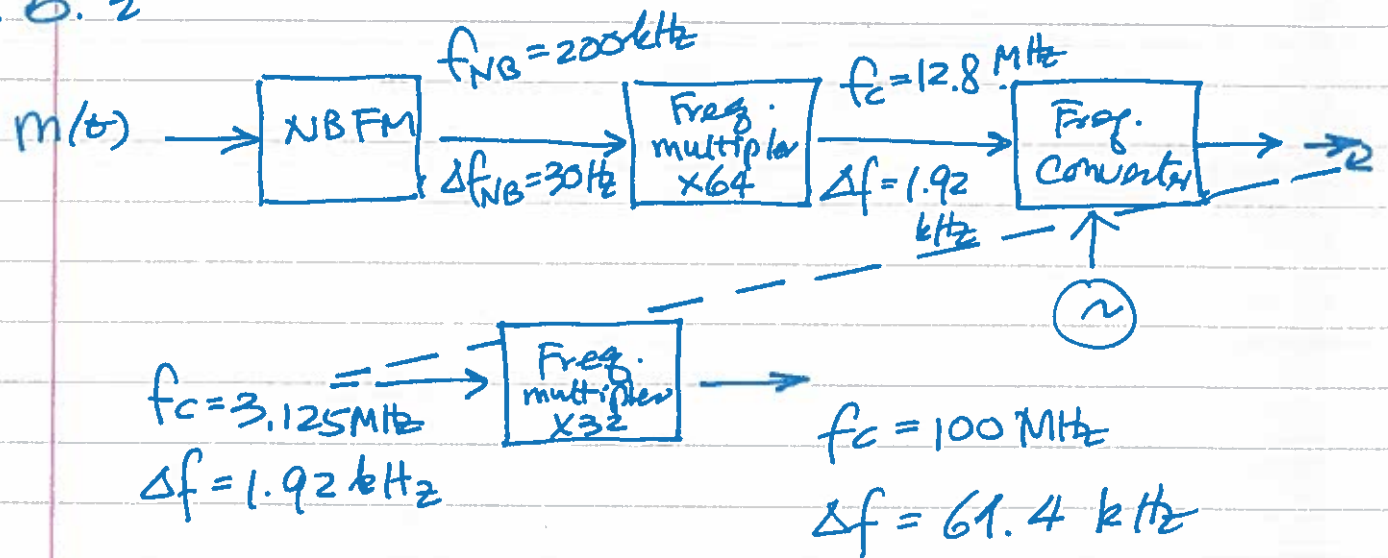 6.2
f_NB = 200kHz
m(t)
NBFM
Δf_NB = 30Hz
Freq.
multipler
x64
f_c = 12.8 MHz
Δf = 1.92
kHz
Freq.
Converter
~
f_c = 3.125MHz
Δf = 1.92 kHz
Freq.
multipler
X32
f_c = 100 MHz
Δf = 61.4 kHz